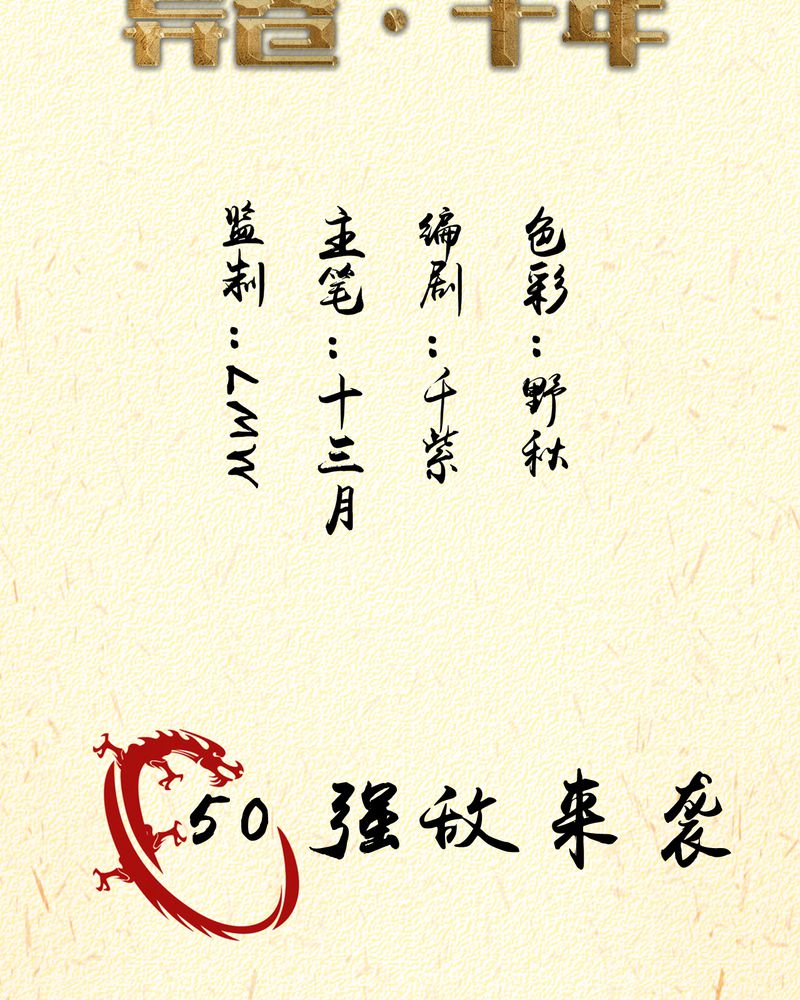 监制:
主笔:十三月
编剧:千紫
色彩:野秋
50 强敌来袭